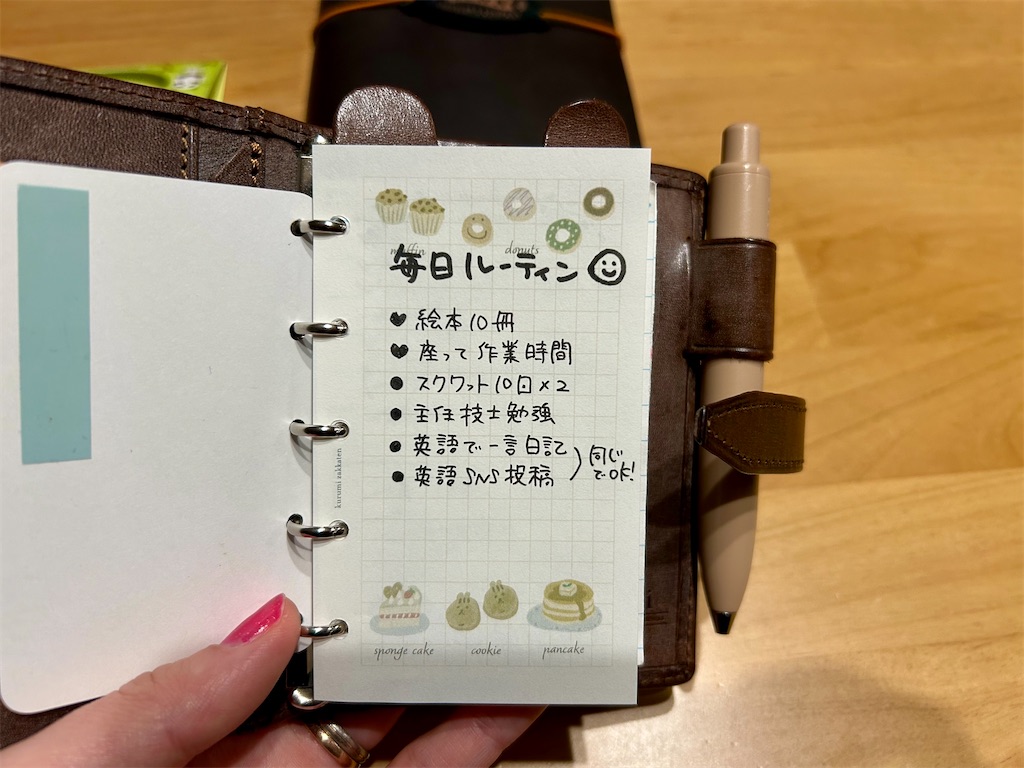 muffin
donuts
毎日ルーティン
♥ 絵本10冊
♥ 座って作業時間
● スクワット10回×2
● 主任技士勉強
● 英語で一言日記
● 英語SNS投稿
同じ
でOK!
kurumi zakkaten
sponge cake
cookie
pancake